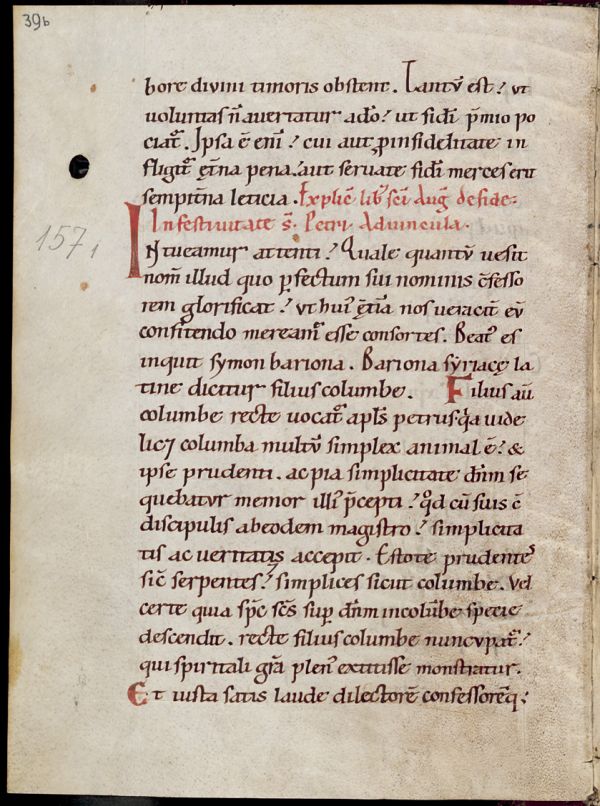 39b
bore divini timoris obstent. Tantū est? ut
voluntas n̄ avertatur a dō? ut fidei p̄mio po
ciat᷑. Ipsa ē enī? cui aut ꝓ infidelitate in
fligit᷑ ęt̄na pena. aut servate fidei merces erit
sempit̄na leticia. Explic̄ lib̄ sc̄i Auḡ de fide.
In festivitate s̄. Petri Advincula.
157,
INtueamur attenti? Quale quantū ve sit
nom̄ illud quo ꝑfectum sui nominis c̄fesso
rem glorificat? ut huiꝰ ęt̄ia nos veracit̄ eū
confitendo mereamꝰ esse consortes. Beatꝰ es
inquit symon bariona. Bariona syriacę la
tine dicitur filius columbe. Filius aū
columbe recte vocat᷑ apl̄s petrus q̄a vide
licꝫ columba multū simplex animal ē? &
ipse prudenti. ac pia simplicitate dn̄m se
quebatur memor illiꝰ p̄cepti? qd̄ cū suis c̄
discipulis ab eodem magistro? simplicita
tis ac veritatis accepit. Estote prudenteˢ
sic̄ serpentes? ⁊ simplices sicut columbe. Vel
certe quia sp̄c sc̄s suꝑ dn̄m in colūbe specie
descendit. recte filius columbe nuncupat᷑?
qui spiritali gr̄a plenꝰ extitisse monstratur.
Et iusta satis laude dilectorē confessorēq;